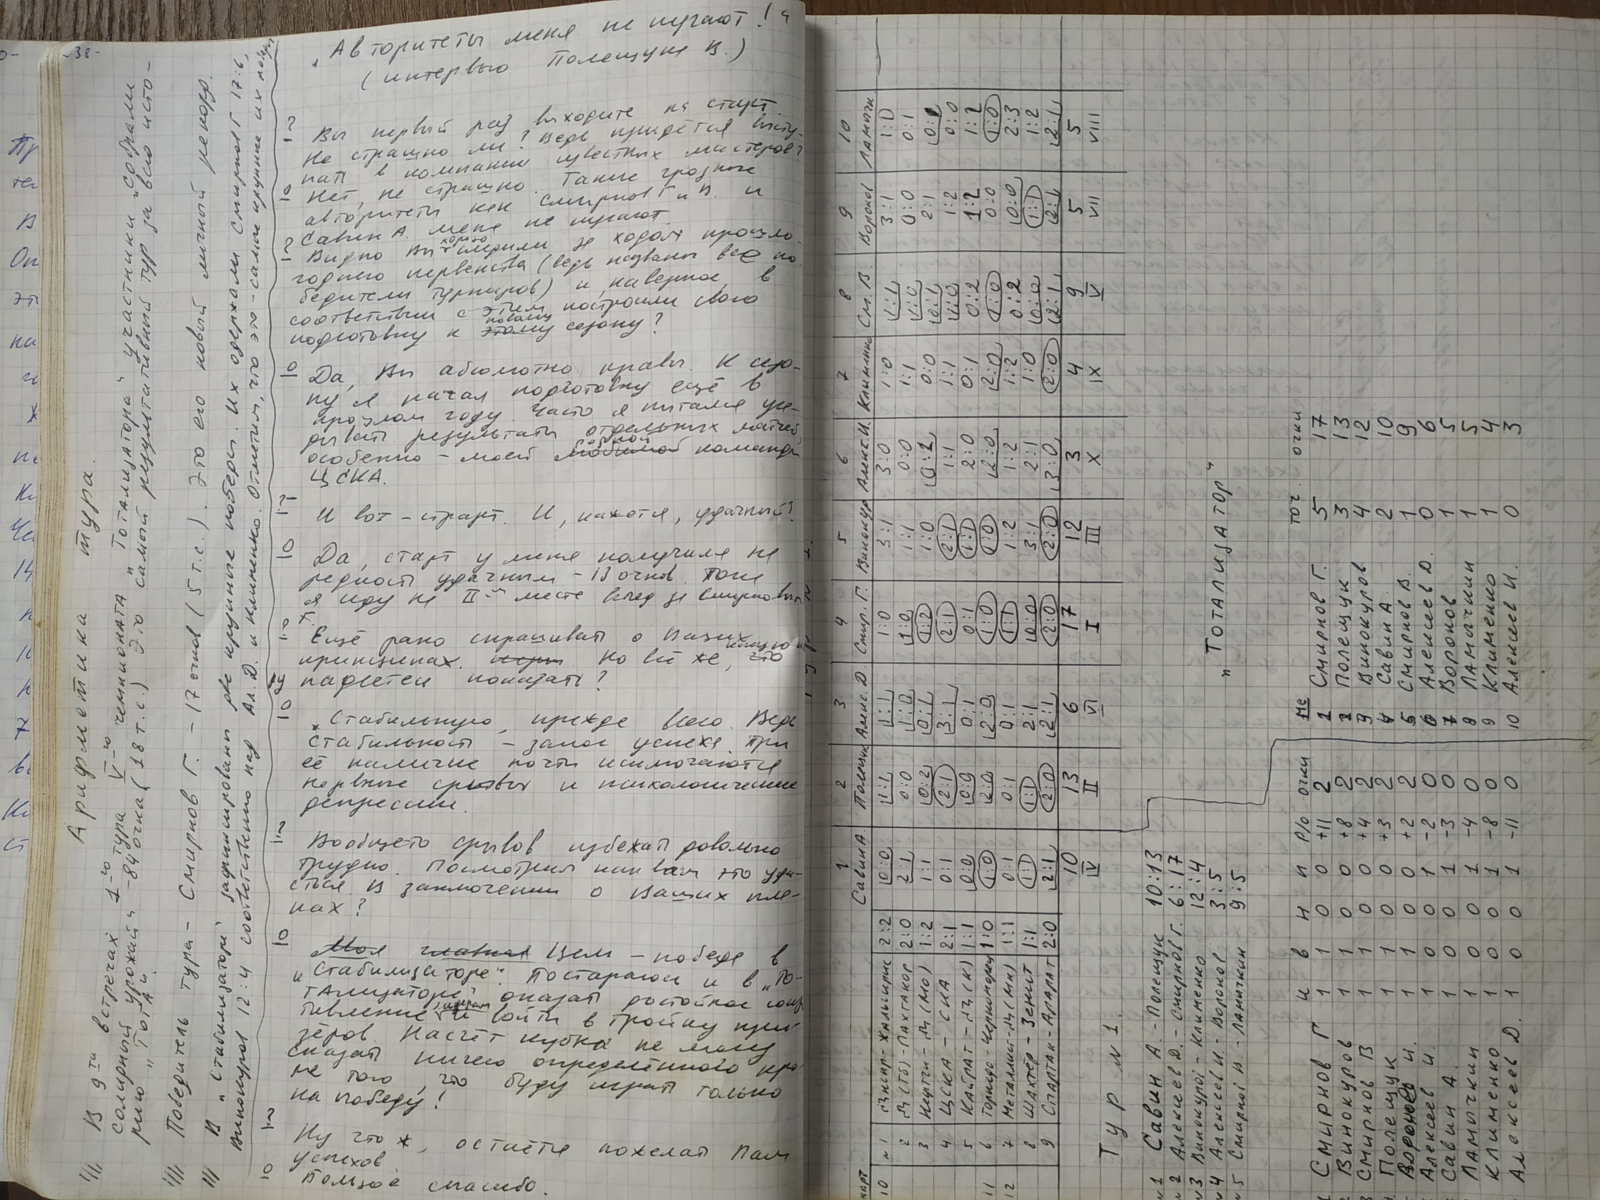 -32-
Арифметика тура.
В 9ти встречах 1го тура Vго чемпионата "Тотализатора" участники "собрали
солидный урожай" - 84 очка (18 т.с.) Это самый результативный тур за всю исто-
рию "Тот-ра".
Победитель тура - Смирнов Г. - 17 очков (5 т.с.). Это его новый личный рекорд.
В "Стабилизаторе" зафиксированы две крупные победы. Их одержали Смирнов Г 17:6,
Винокуров 12:4 соответственно над Ал. Д. и Клименко. Отметим, что это - самые крупные их победы
"Авторитеты меня не пугают!"
(интервью Полещука В.)
Вы первый раз выходите на старт
Не страшно ли? Ведь придётся высту-
пать в компании известных мастеров?
Нет, не страшно. Такие грозные
авторитеты как Смирнов Г. и В. и
Савин А. меня не пугают.
Видно Вы хорошо следили за ходом прошло-
годнего первенства (ведь названы все по-
бедители турниров) и, наверное, в
соответствии с этим построили свою
подготовку к новому сезону?
Да, Вы абсолютно правы. К сезо-
ну я начал подготовку ещё в
прошлом году. Часто я пытался уга-
дывать результаты отдельных матчей
особенно - моей родной команды
ЦСКА.
И вот - старт. И, кажется, удачный?
Да, старт у меня получился на
редкость удачным - 13 очков. Пока
я иду на IIом месте вслед за Смирновым
Ещё рано спрашивать о Ваших
принципах. Но всё же, какую игру
надеетесь показать?
Стабильную, прежде всего. Ведь
стабильность - залог успеха. При
её наличии почти исключаются
нервные срывы и психологические
депрессии.
Вообще-то срывов избежать довольно
трудно. Посмотрим как вам это уда-
стся. В заключении о Ваших пла-
нах?
Цель - победа в
"Стабилизаторе". Постараюсь и в "То-
тализаторе" оказать достойное сопро-
тивление и войти в тройку при-
зёров. Насчёт кубка не могу
сказать ничего определённого кро-
ме того, что буду играть только
на победу!
Ну что ж, остаётся пожелать Вам
успехов.
Большое спасибо.
март
N 1 2 3 4 5 6 7 8 9 10
Савин А Полещук Алекс. Д Смир. Г. Винокур Алекс. И. Клименко См. В. Воронов Ламочк
10 1 Днепр - Жальгирис 2:2 0:0 1:1 1:1 1:0 3:1 3:0 1:0 1:1 3:1 1:0
2 Д (Тб) - Пахтакор 2:0 2:1 0:0 1:0 1:0 1:1 0:0 1:1 1:0 0:0 0:1
3 Нефтчи - Д (Мо) 1:2 1:1 0:2 0:1 1:2 1:0 0:2 0:0 0:1 2:1
4 ЦСКА - СКА 2:1 0:1 2:1 3:1 2:1 2:1 1:1 1:1 1:0 1:2 0:0
5 Кайрат - Д (К) 1:1 0:0 0:0 0:1 0:1 1:1 2:0 0:1 0:2 1:2 1:2
11 6 Торпедо - Черноморец 1:0 1:0 2:0 2:0 1:0 1:0 2:0 2:0 1:0 0:0 1:0
12 7 Металлист - Д (Мн) 1:1 0:1 0:1 0:1 1:1 1:2 1:2 1:2 0:2 0:0 2:3
8 Шахтёр - Зенит 1:1 1:1 1:1 2:1 0:0 3:1 2:1 1:0 0:0 1:1 1:2
9 Спартак - Арарат 2:0 2:1 2:0 2:1 2:0 2:0 3:0 2:0 2:1 2:1 2:1
10 13 6 17 12 3 4 9 5 5
IV II VI I III X IX V VII VIII
Тур N 1.
N 1 Савин А. - Полещук 10:13
N 2 Алексеев Д. - Смирнов Г. 6:17
N 3 Винокуров - Клименко 12:4
N 4 Алексеев И - Воронов 3:5
N 5 Смирнов В - Ламочкин 9:5
и в н п р/о очки
Смирнов Г 1 1 0 0 +11 2
Винокуров 1 1 0 0 +8 2
Смирнов В 1 1 0 0 +4 2
Полещук 1 1 0 0 +3 2
Воронов И. 1 1 0 0 +2 2
Алексеев И. 1 0 0 1 -2 0
Савин А 1 0 0 1 -3 0
Ламочкин 1 0 0 1 -4 0
Клименко 1 0 0 1 -8 0
Алексеев Д. 1 0 0 1 -11 0
"Тотализатор"
ме точ. очки
1 Смирнов Г. 5 17
2 Полещук 3 13
3 Винокуров 4 12
4 Савин А. 2 10
5 Смирнов В. 1 9
6 Алексеев Д. 0 6
7 Воронов 1 5
8 Ламочкин 1 5
9 Клименко 1 4
10 Алексеев И. 0 3